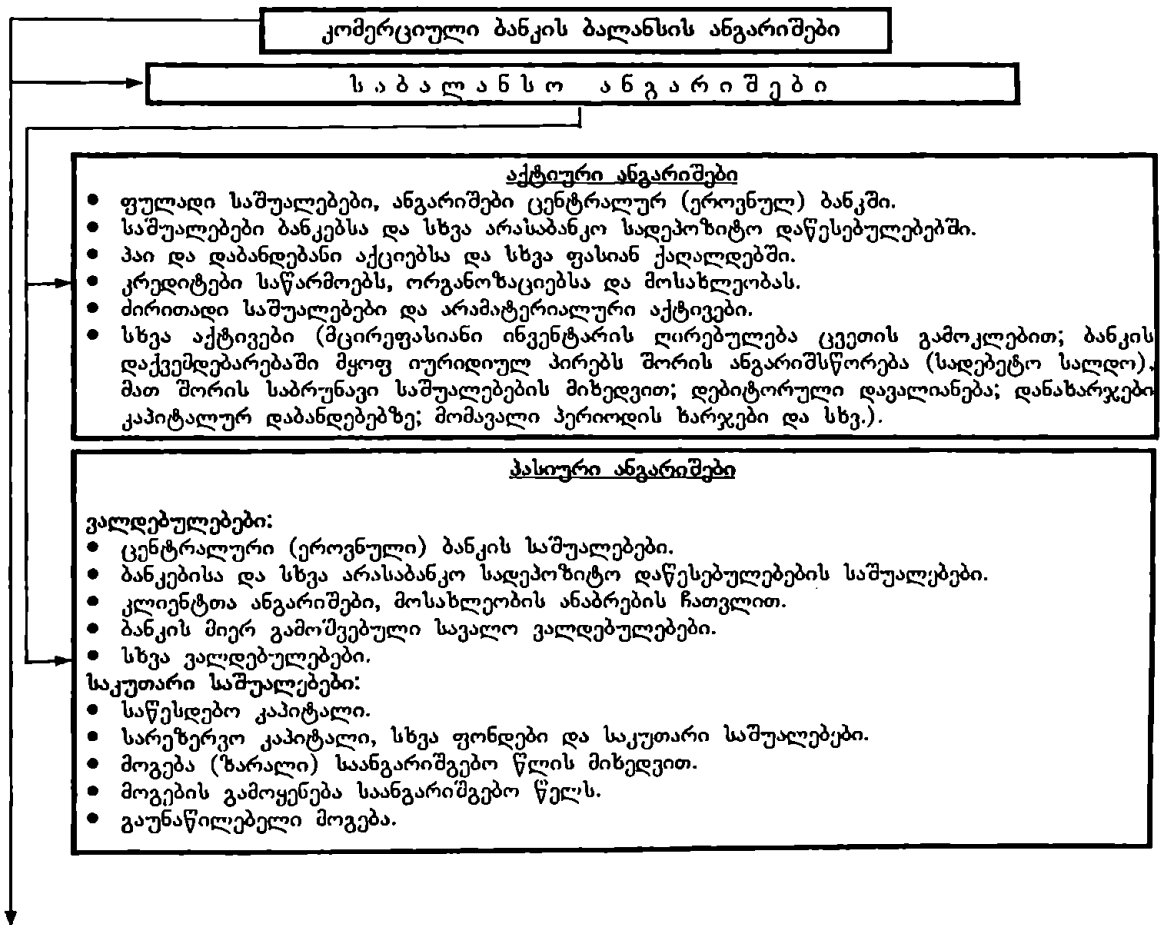 კომერციული ბანკის ბალანსის ანგარიშები
საბალანსო ანგარიშები
აქტიური ანგარიშები
• ფულადი საშუალებები, ანგარიშები ცენტრალურ (ეროვნულ) ბანკში.
• საშუალებები ბანკებსა და სხვა არასაბანკო სადეპოზიტო დაწესებულებებში.
• პაი და დაბანდებანი აქციებსა და სხვა ფასიან ქაღალდებში.
• კრედიტები საწარმოებს, ორგანოზაციებსა და მოსახლეობას.
• ძირითადი საშუალებები და არამატერიალური აქტივები.
• სხვა აქტივები (მცირეფასიანი ინვენტარის ღირებულება ცვეთის გამოკლებით; ბანკის
დაქვემდებარებაში მყოფ იურიდიულ პირებს შორის ანგარიშსწორება (სადებეტო სალდო),
მათ შორის საბრუნავი საშუალებების მიხედვით; დებიტორული დავალიანება; დანახარჯები
კაპიტალურ დაბანდებებზე; მომავალი პერიოდის ხარჯები და სხვ.).
პასიური ანგარიშები
ვალდებულებები:
• ცენტრალური (ეროვნული) ბანკის საშუალებები.
• ბანკებისა და სხვა არასაბანკო სადეპოზიტო დაწესებულებების საშუალებები.
• კლიენტთა ანგარიშები, მოსახლეობის ანაბრების ჩათვლით.
• ბანკის მიერ გამოშვებული სავალო ვალდებულებები.
• სხვა ვალდებულებები.
საკუთარი საშუალებები:
• საწესდებო კაპიტალი.
• სარეზერვო კაპიტალი, სხვა ფონდები და საკუთარი საშუალებები.
• მოგება (ზარალი) საანგარიშგებო წლის მიხედვით.
• მოგების გამოყენება საანგარიშგებო წელს.
• გაუნაწილებელი მოგება.